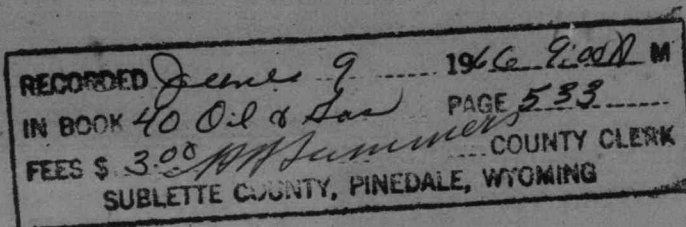 RECORDED June 9 1966 9:00 A M
IN BOOK 40 Oil & Gas PAGE 533
FEES $ 3.00 Summers COUNTY CLERK
SUBLETTE COUNTY, PINEDALE, WYOMING